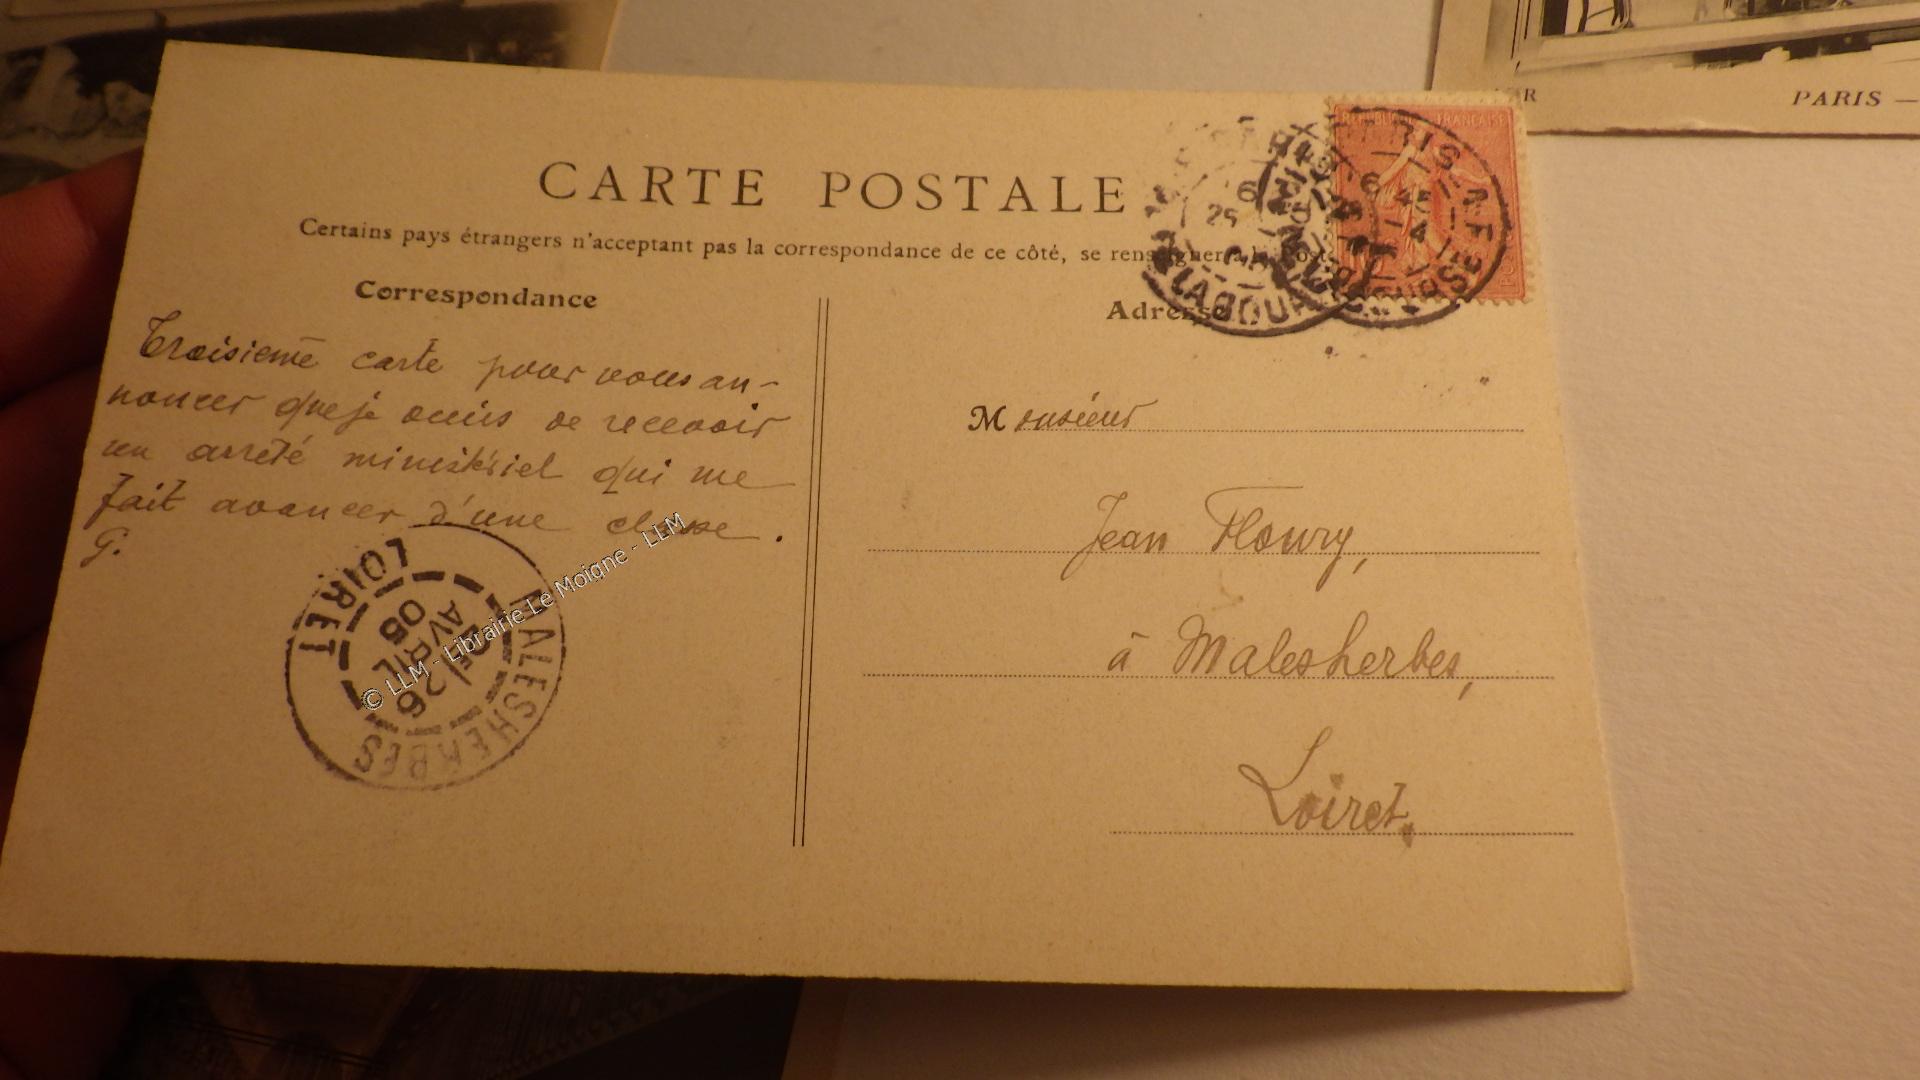 CARTE POSTALE
Certains pays étrangers n'acceptant pas la correspondance de ce côté, se renseigner à la Poste
Correspondance
Troisième carte pour vous an-
noncer que je viens de recevoir
un arrêté ministériel qui me
fait avancer d'une classe.
G.
Adresse
Monsieur
Jean Floury,
à Malesherbes,
Loiret.
REPUBLIQUE FRANCAISE
PARIS
6 45
25 -4
LA BOURSE
MALESHERBES
26
AVRIL
05
LOIRET
© LLM - Librairie Le Moigne - LLM
PARIS —